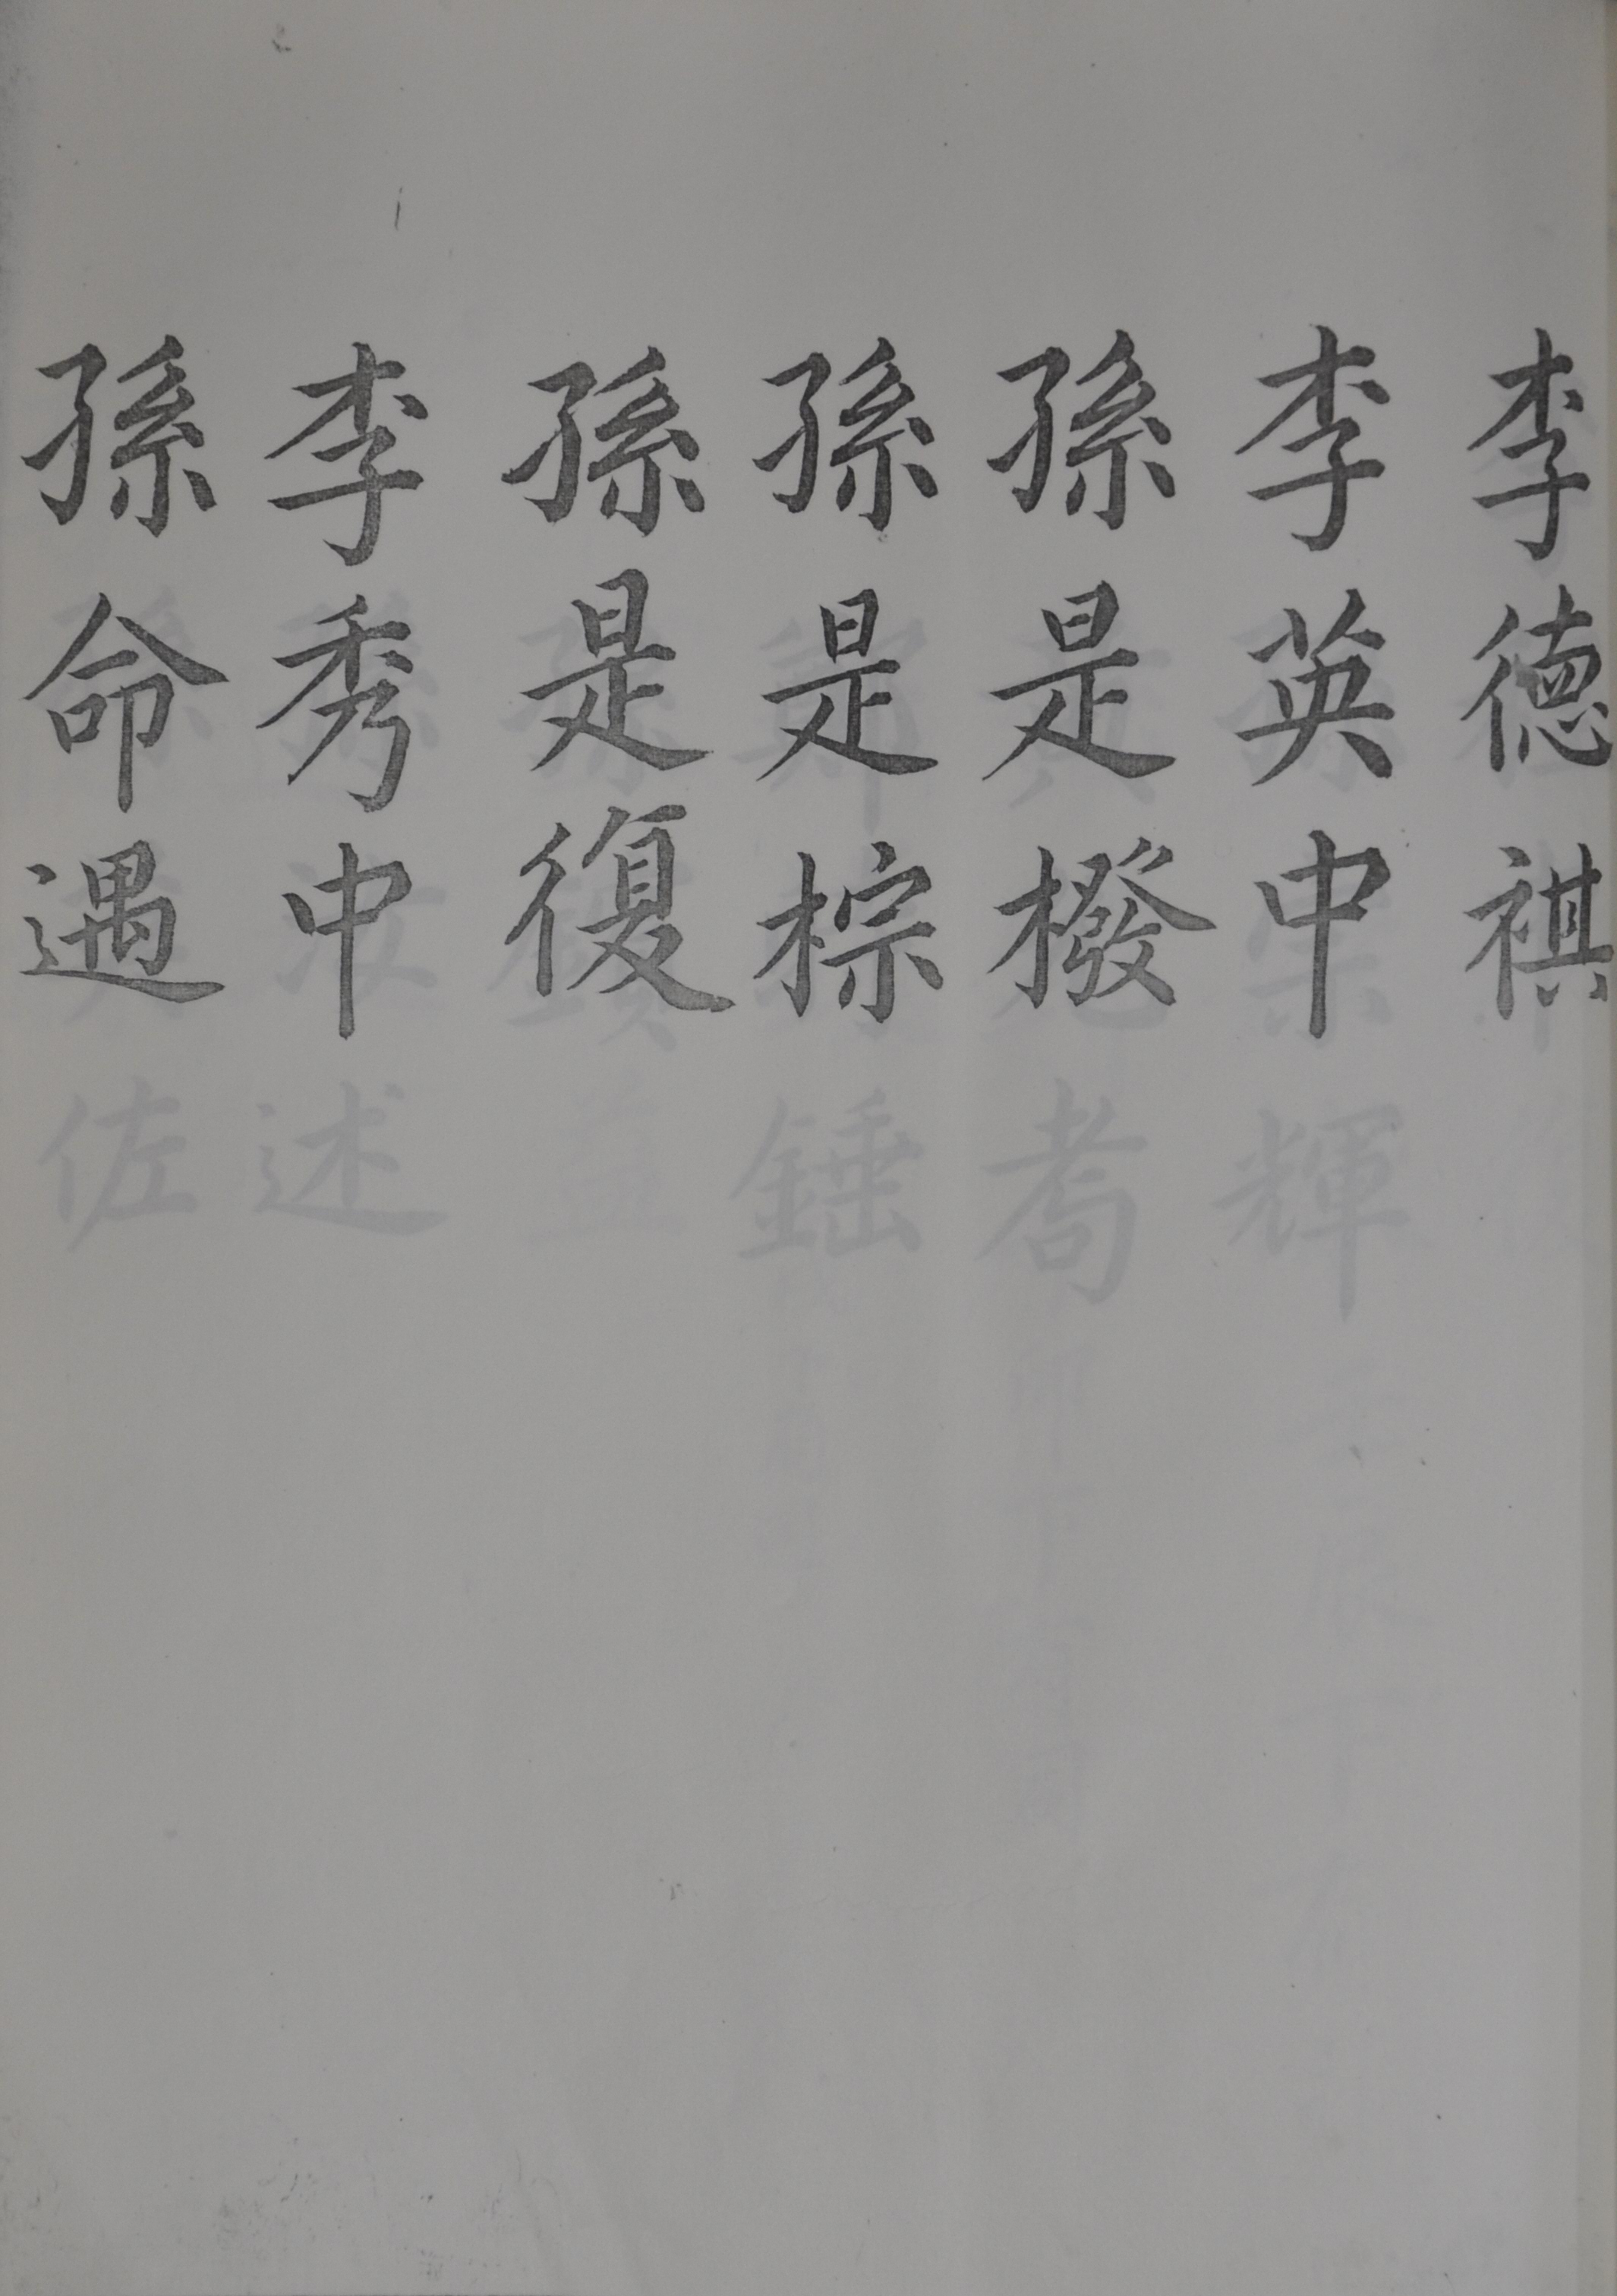 李德祺
李英中
孫是橃
孫是棕
孫是復
李秀中
孫命遇